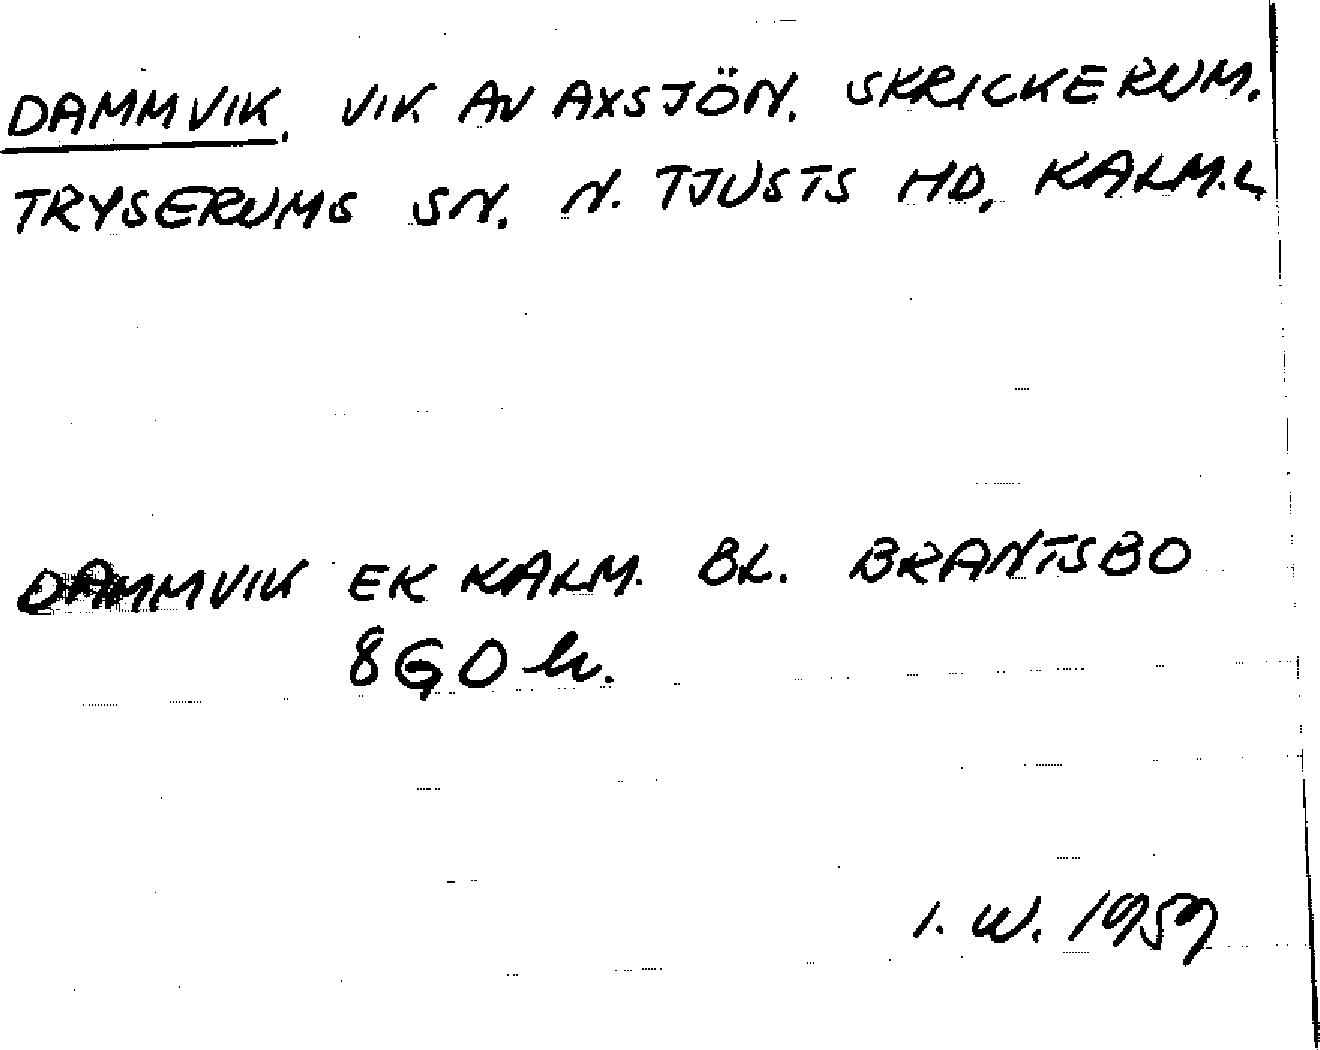 DAMMVIK. VIK AV AXSJÖN. SKRICKERUM.
TRYSERUMS SN. N. TJUSTS HD, KALM.L
DAMMVIK EK KALM. BL. BRANTSBO
8GO h.
I. W. 1959